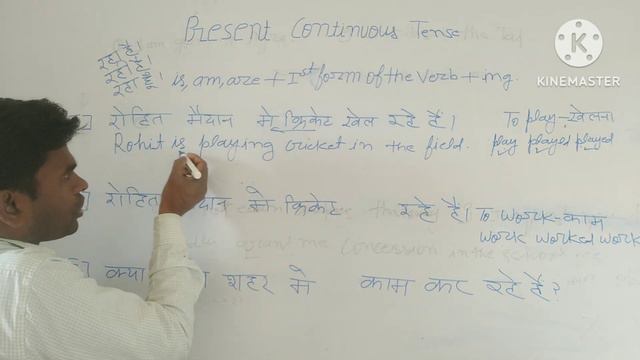 Present Continuous Tense
रहा है।
रही है।
रहा हूँ।
is, am, are + Ist form of the Verb + ing.
KINEMASTER
रोहित मैदान मे क्रिकेट खेल रहे हैं। To play - खेलना
Rohit is playing cricket in the field. play played played
रोहित मे क्रिकेट रहे हैं। To work - काम
work worked work
क्या शहर मे काम कर रहे हैं?